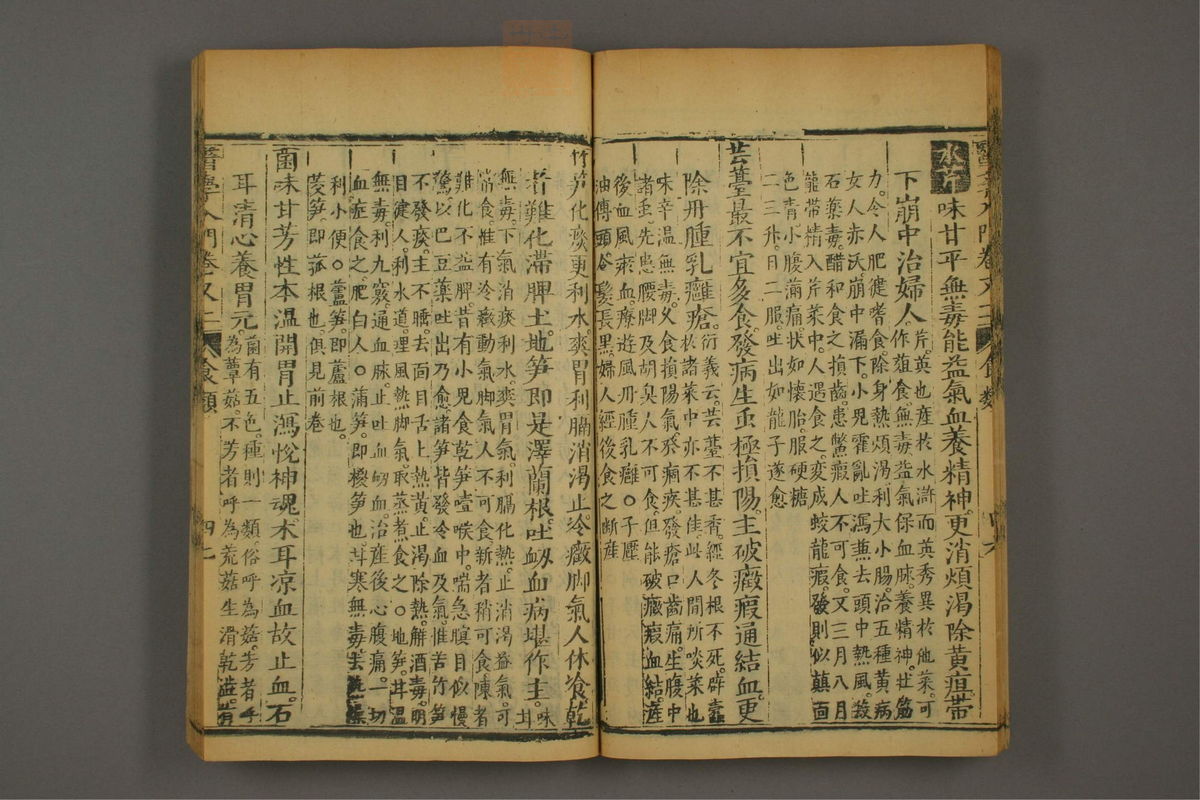 水芹味甘平無毒能益氣血養精神更消煩渴除黃疸帶
下崩中治婦人
芹英也產於水滸而英秀異於他菜可
作葅食無毒益氣保血脉養精神壯筋
力令人肥健嗜食除身熱煩渴利大小腸治五種黃病
女人赤沃崩中漏下小兒霍亂吐瀉兼去頭中熱風殺
石藥毒醋和食之損齒患鱉瘕人不可食又三月八月
龍帶精入芹菜中人遇食之變成蛟龍瘕發則似蘱面
色青小腹滿痛狀如懷胎服硬糖
二三升日二服吐出如龍子遂愈
芸薹最不宜多食發病生虫極損陽主破癥瘕通結血更
除丹腫乳癰瘡
衍義云芸薹不甚香經冬根不死辟蠹
於諸菜中亦不甚佳此人間所啖菜也
味辛溫無毒乂食損陽氣發痼疾發瘡口齒痛生腹中
諸虫先患腰脚及胡臭人不可食但能破癥瘕血結產
後血風瘀血療遊風丹腫乳癰○子壓
油傅頭令髮長黑婦人經後食之斷產
竹笋化痰更利水爽胃利膈消渴止冷癥脚氣人休飡乾
者難化滯脾土地笋即是澤蘭根吐衂血病堪作主
味甘
無毒下氣消痰利水爽胃氣利膈化熱止消渴益氣可
常食惟有冷癥動氣脚氣人不可食新者稍可食陳者
難化不益脾昔有小兒食乾笋噎喉中喘急瞋目似慢
驚以巴豆藥吐出乃愈諸笋皆發冷血及氣惟苦竹笋
不發痰主不睡去面目舌上熱黃止渴除熱解酒毒明
目健人利水道理風熱脚氣取蒸煮食之○地笋甘溫
無毒利九竅通血脉止吐血衂血治產後心腹痛一切
血症食之肥白人○蒲笋即稷笋也甘寒無毒
利小便○蘆笋即蘆根也
茭笋即菰根也俱見前卷
菌味甘芳性本溫開胃止瀉悅神魂木耳凉血故止血石
耳清心養胃元
菌有五色種則一類俗呼為菇芳者呼
為蕈菇不芳者呼為蕘菇生滑乾澁
醫學入門卷又二
食類
四六
醫學入門卷又二
食類
四七